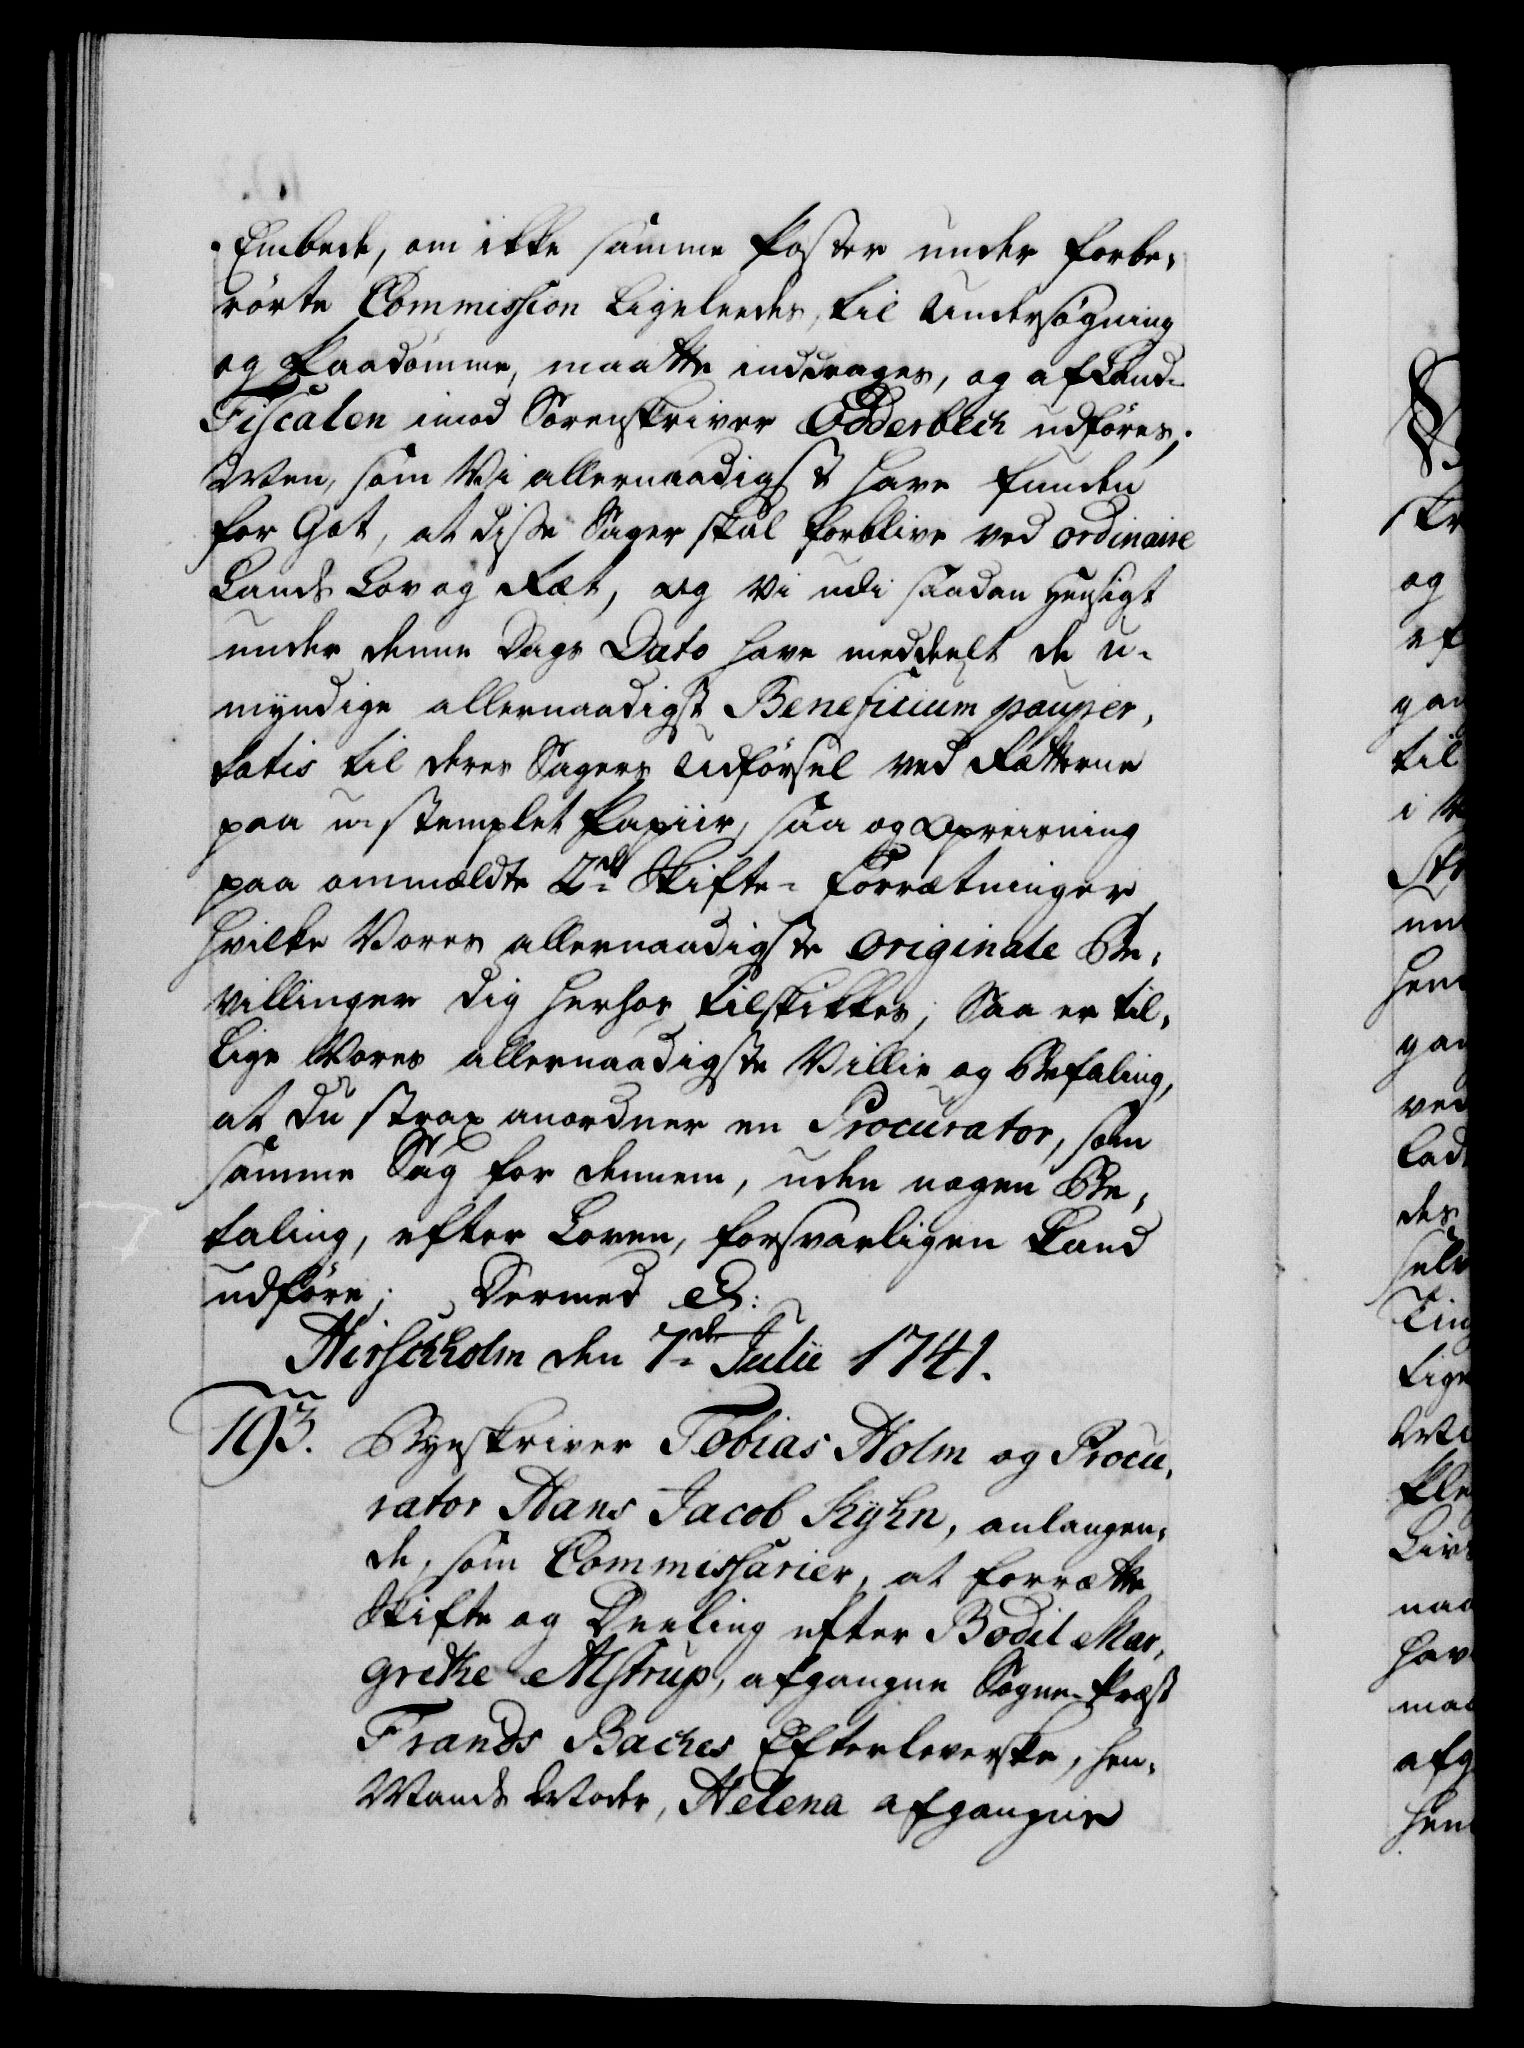 Embede, om ikke samme Poster under forbe,
rörte Commission ligeleedes, til Undersøgning
og Paadömme, maatte inddrages, og af Land-
Fiscalen imod Sorenskriver Edderbech udføres;
Men, som Vi allernaadigst have funden
for Got, at disse Sager skal forblive ved ordinaire
Lands Lov og Ræt, og Vi udi saadan Hensigt
under denne Dags Dato have meddeelt de u-
myndige allernaadigst Beneficium pauper,
tatis til deres Sagers Udførsel ved Rætterne
paa u-stemplet Papiir, saa og Opreisning
paa ommældte 2de Skifte-Forrætninger,
hvilke Vores allernaadigste originale Be,
villinger dig herhos tilskikkes; Saa er til,
lige Vores allernaadigste Villie og Befaling,
at du strax anordner en Procurator, som
samme Sag for dennem, uden nogen Be,
taling, efter Loven, forsvarligen kand
udføre; Dermed &:
Hirschholm den 7de Julii 1741.
193. Byeskriver Tobias Holm og Procu,
rator Hans Jacob Kyhn, anlangen,
de, som Commissarier, at forrætte
Skifte og Deeling efter Bodil Mar,
grethe Alstrup, afgangne Sogne-Præst
Frands Baches Efterleverske, hen,
Mands Moder, Helena afgangne